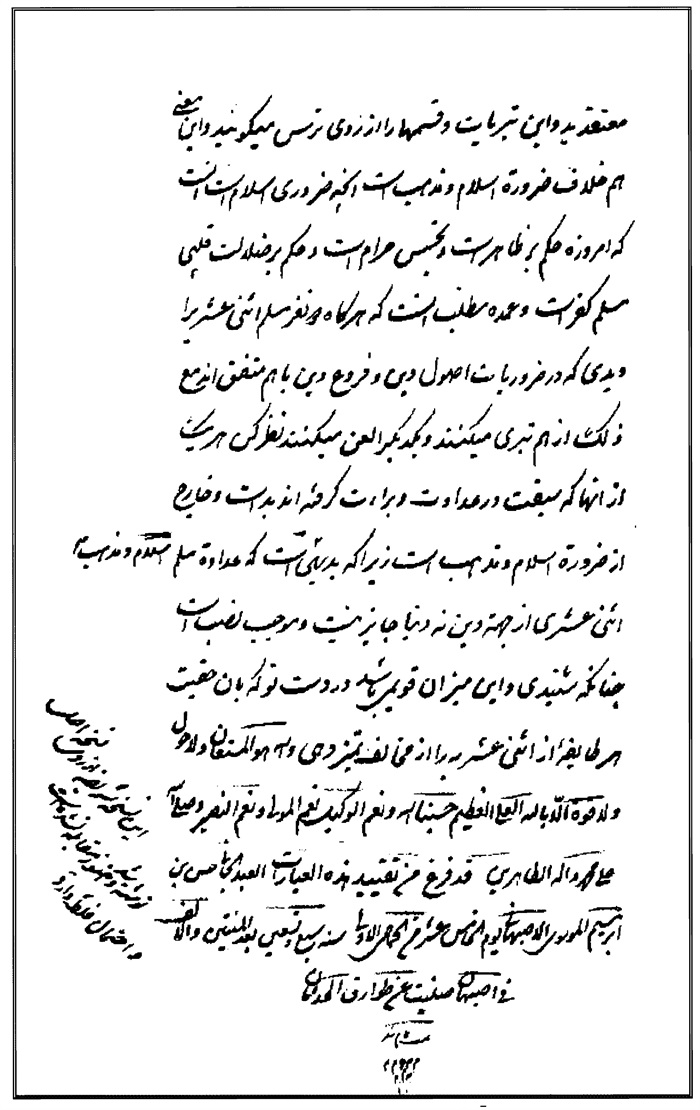 معتقدید و این تبریات و قسمها را از روی ترس میگویند و این معنی
هم خلاف ضرورة اسلام و مذهب است آنچه ضروری اسلام است آنست
که امروزه حکم بر ظاهر است و تجسس حرام است و حکم بر ضلالت قلبی
مسلم کفر است و عمده مطلب آنست که هرگاه دو نفر مسلم اثنی عشری را
دیدی که در ضروریات اصول دین و فروع دین با هم متفق اند مع
ذلک از هم تبری میکنند و یکدیگر را لعن میکنند نظر کن هر یک
از آنها که سبقت در عداوت و براءت گرفته اند بد است و خارج
از ضرورة اسلام و مذهب است زیرا که بدیهی است که عداوة مسلم اسلام و مذهب
اثنی عشری از جهة دین نه دنیا جایز نیست و موجب نصب است
چنانکه شنیدی و این میزان قویمی باشد در دست تو که بآن حقیت
هر طایفه از اثنی عشریه را از مخالف تمیز دهی والله هو المستعان ولا حول
ولا قوة الا بالله العلی العظیم حسبنا الله ونعم الوکیل نعم المولی ونعم النصیر وصلی الله
علی محمد وآله الطاهرین قد فرغ من تقیید هذه العبارات العبد الجانی حسن بن
ابراهیم الموسوی الاصبهانی یوم الخامس عشر من الجمادی الاولی سنه سبع وتسعین بعد المئتین والالف
فی اصبهان صینت عن طوارق الحدثان
این نسخه از روی نسخه اصل
نوشته
و احتمال غلط دارد